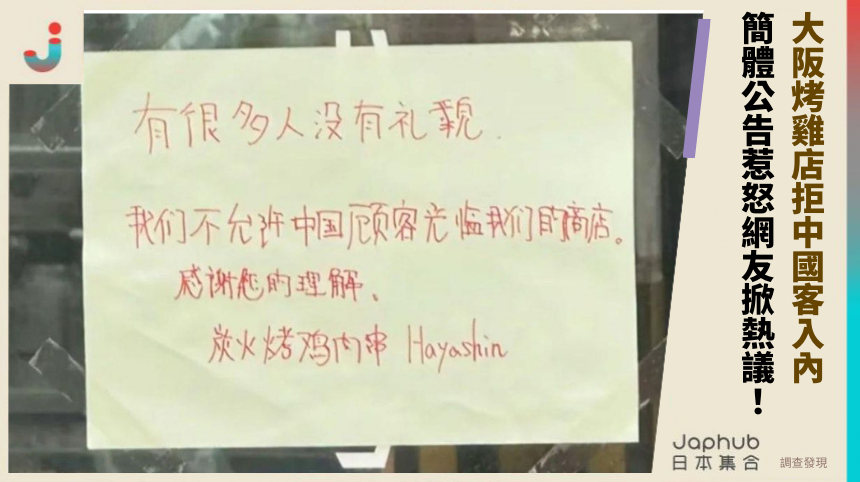 大阪烤雞店拒中國客入內
簡體公告惹怒網友掀熱議！
有很多人没有礼貌.
我们不允许中国顾客光临我们的商店。
感谢您的理解、
炭火烤鸡肉串 Hayashin
Japhub
日本集合
調查發現